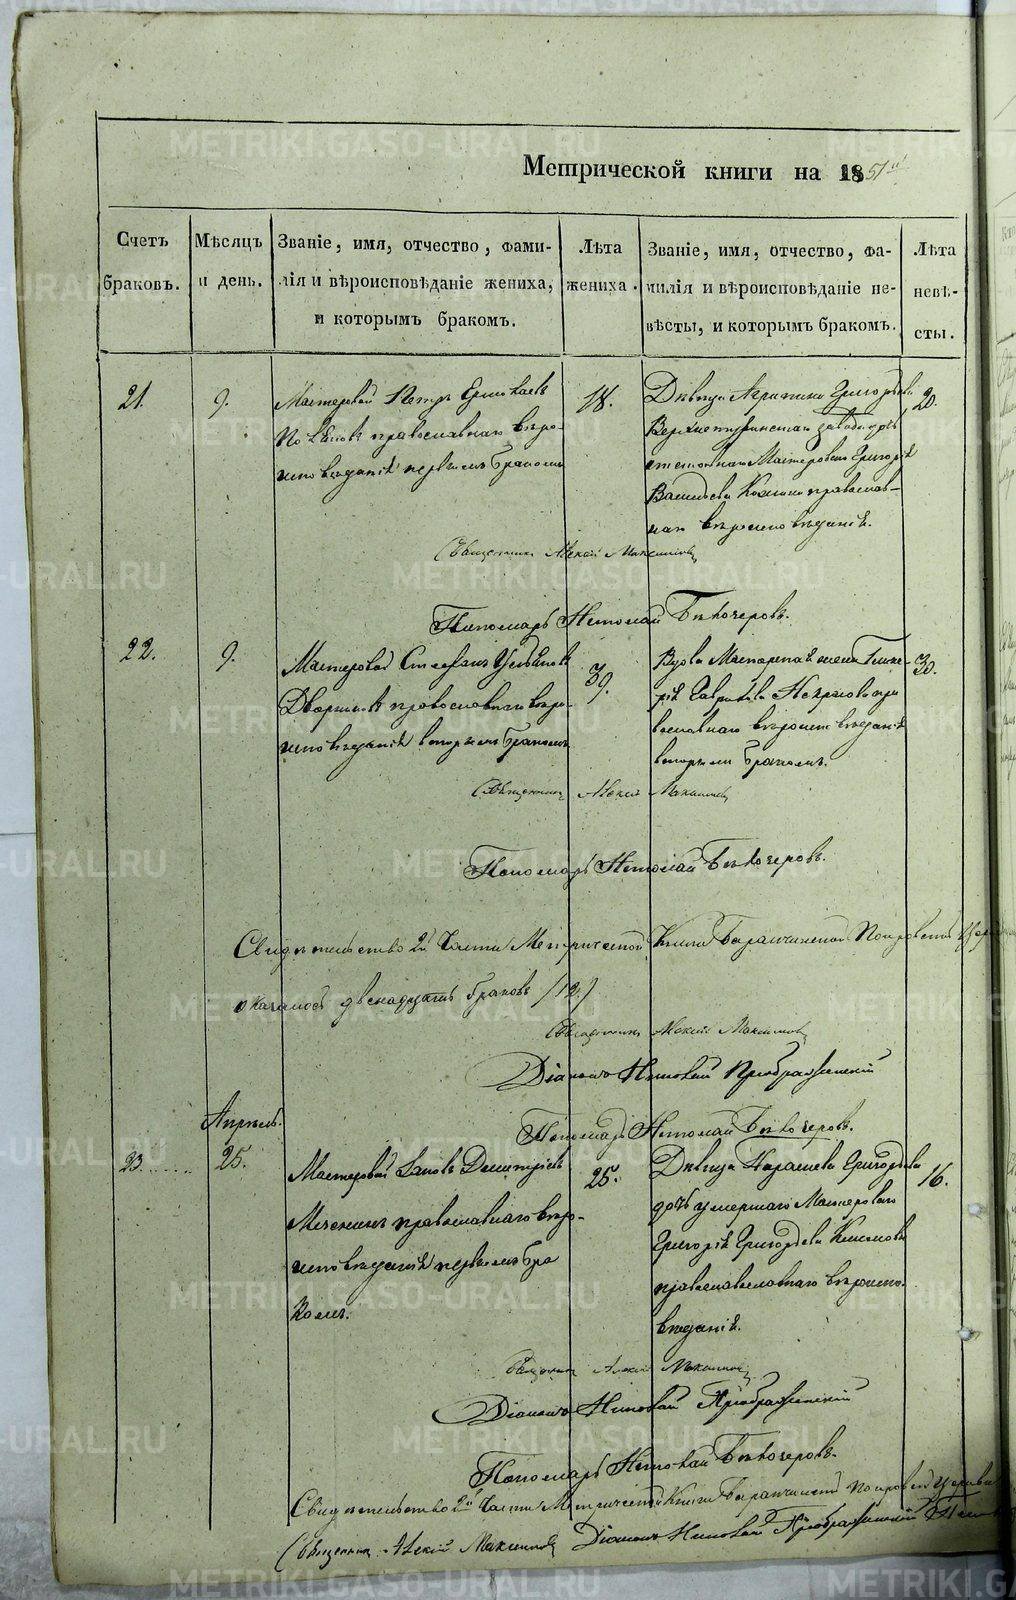 Метрической книги на 1851й
Счетъ браковъ.
Мѣсяцъ и день.
Званіе, имя, отчество, фами-
лія и вѣроисповѣданіе жениха,
и которымъ бракомъ.
Лѣта жениха.
Званіе, имя, отчество, фа-
милія и вѣроисповѣданіе не-
вѣсты, и которымъ бракомъ.
Лѣта невѣ-
сты.
21.
9.
Мастеровой Петръ
православнаго вѣро-
исповѣданія первымъ бракомъ
18.
Дѣвица Агрипина Григорьева
Верхнетуринскаго завода
Мастероваго Григорія
Васильева православ-
наго вѣроисповѣданія.
20.
Священникъ Алексій Максимовъ
Пономарь Николай Бѣлочеровъ.
22.
9.
Мастеровой Стефанъ
православнаго вѣро-
исповѣданія вторымъ бракомъ
39.
Вдова Мастерская жена Глике-
рія Гаврилова Некрасова пра
вославнаго вѣроисповѣданія
вторымъ бракомъ.
30.
Священникъ Алексій Максимовъ
Пономарь Николай Бѣлочеровъ.
Свидѣтельство 2й Части Метрической Книги Баранчинской Покровской
оказалось двенадцать браковъ /12/
Священникъ Алексій Максимовъ
Діаконъ Николай Преображенскій
Пономарь Николай Бѣлочеровъ.
Апрѣль.
23.
25.
Мастеровой Іаковъ Димитріевъ
православнаго вѣро-
исповѣданія первымъ бра
комъ.
25.
Дѣвица Парасковья Григорьева
дочь умершаго Мастероваго
Григорія Григорьева
православнаго вѣроиспо-
вѣданія.
16.
Священникъ Алексій Максимовъ
Діаконъ Николай Преображенскій
Пономарь Николай Бѣлочеровъ.
Свидѣтельство 2й Части Метрической Книги Баранчинской Покровской Церкви
Священникъ Алексій Максимовъ Діаконъ Николай Преображенскій
METRIKI.GASO-URAL.RU